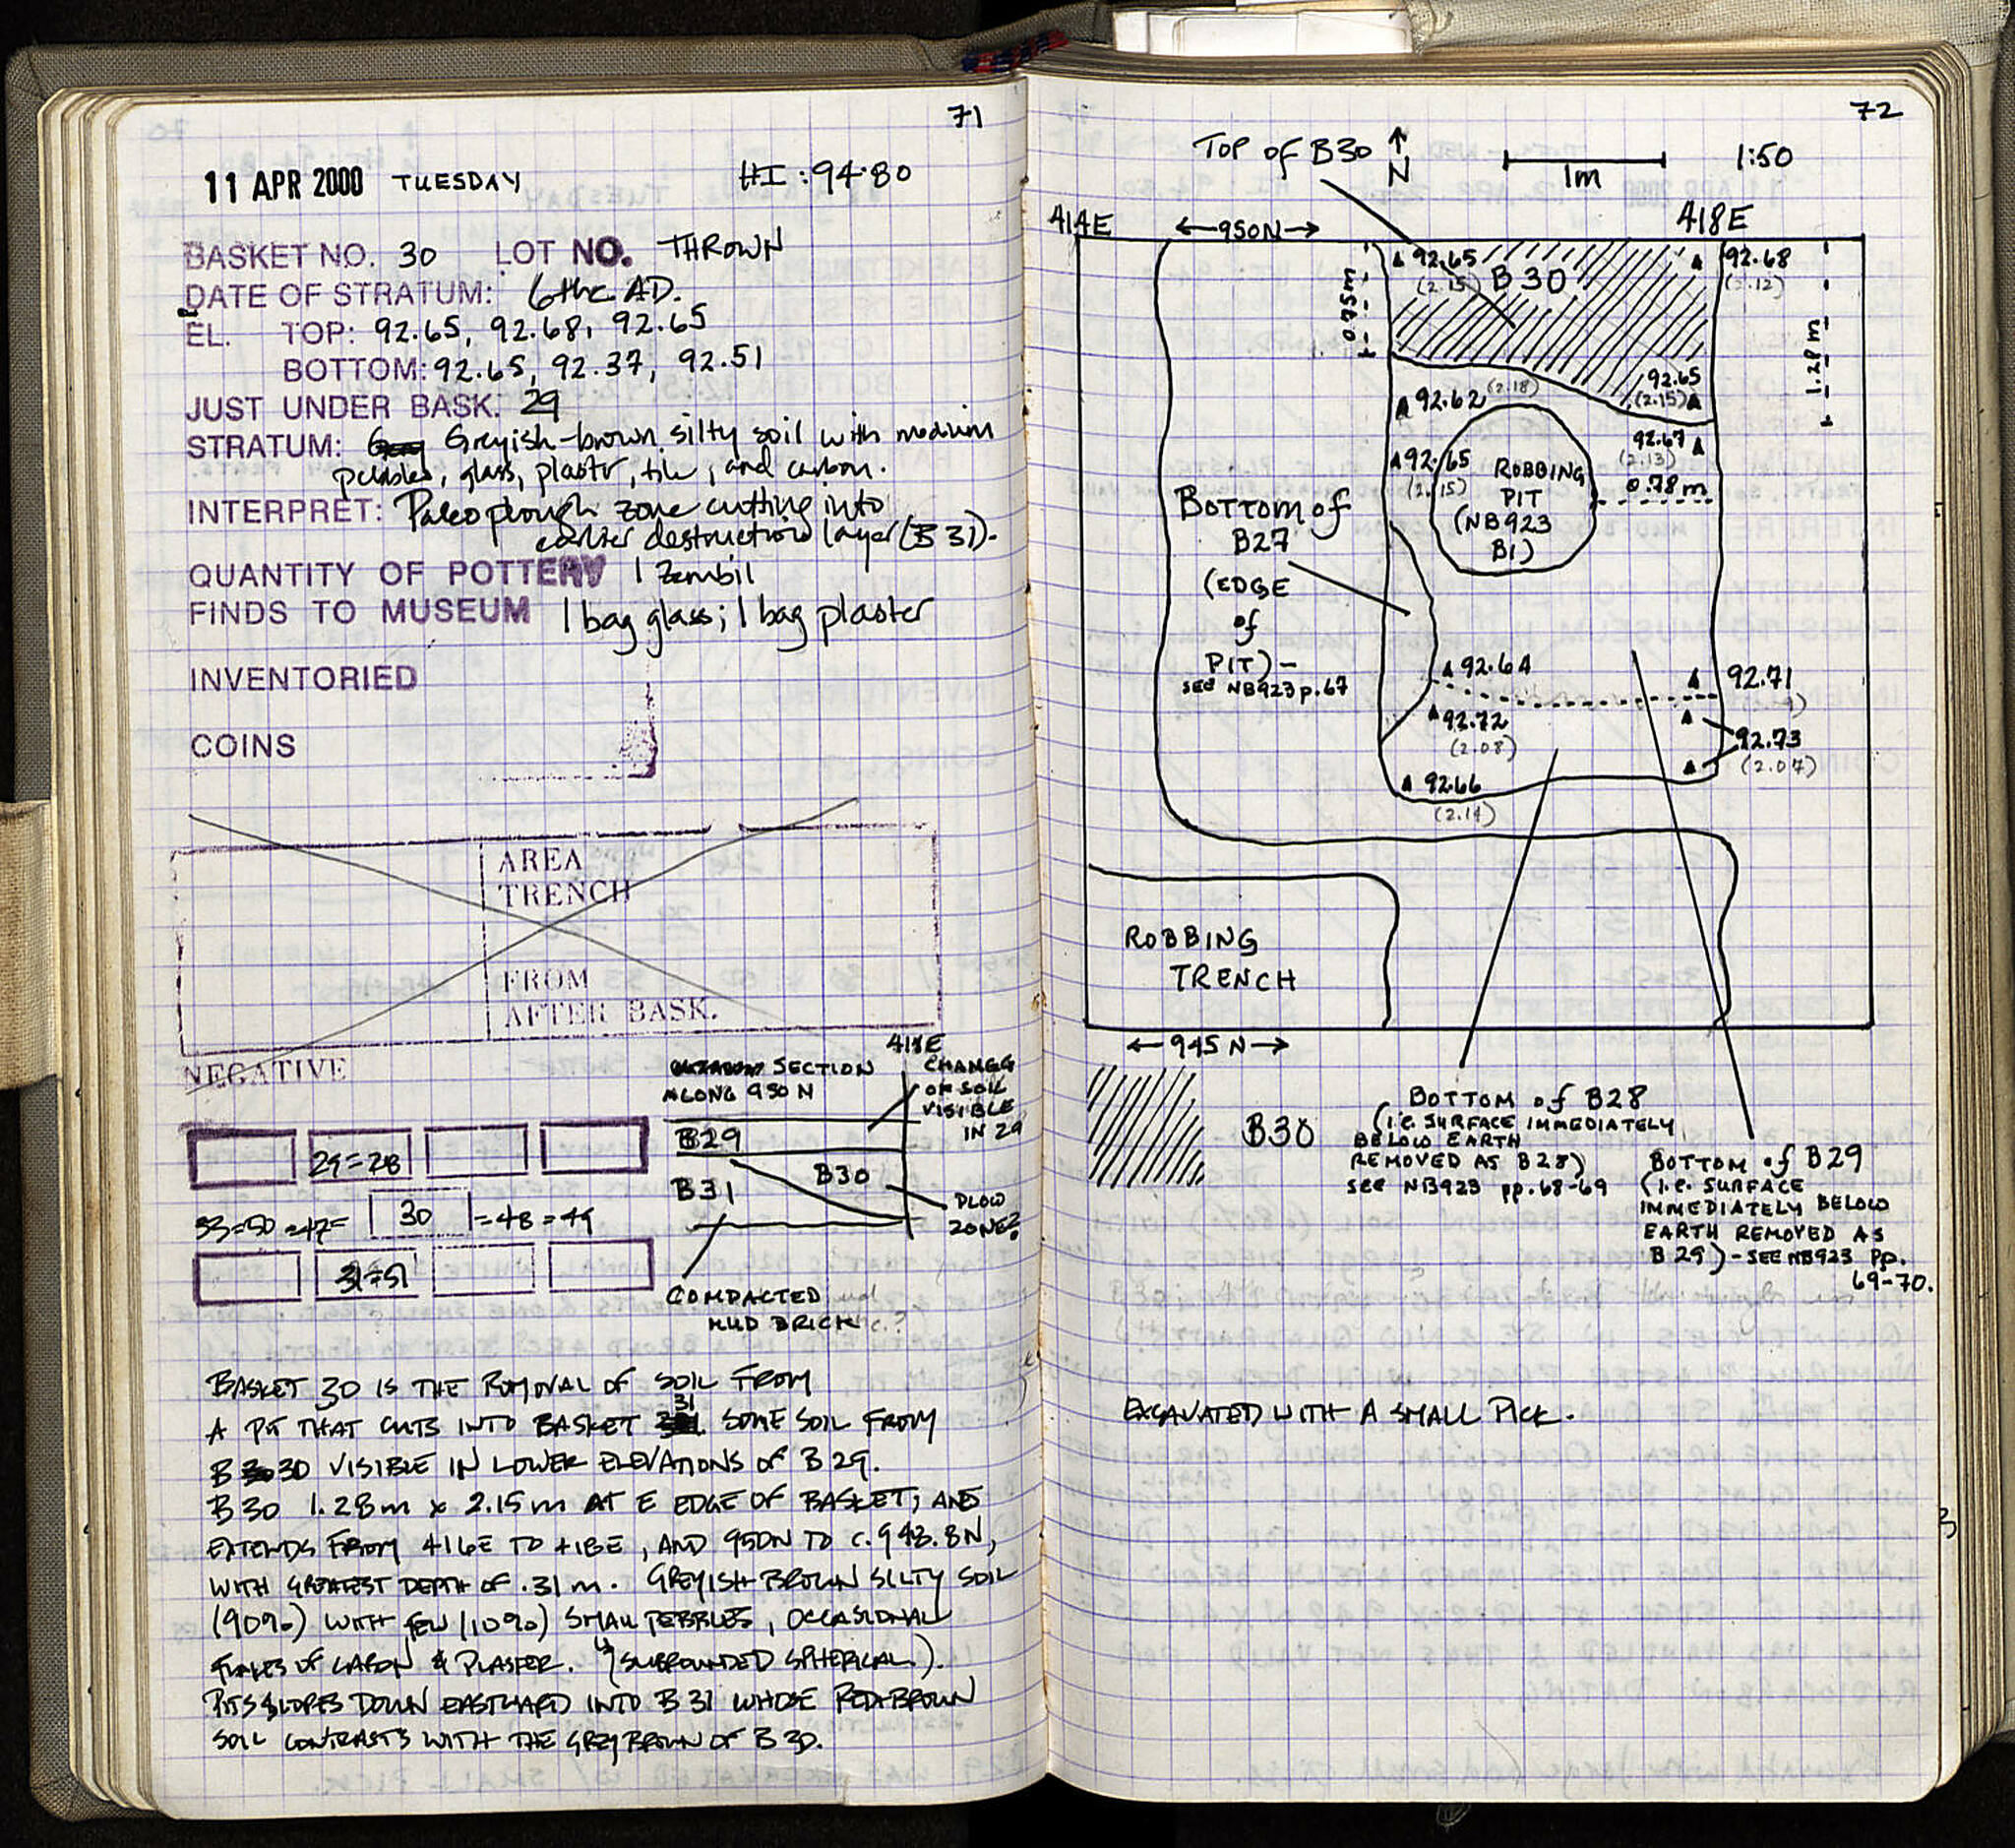 71
11 APR 2000 TUESDAY HI: 94.80
BASKET NO. 30 LOT NO. THROWN
DATE OF STRATUM: 6th c. AD.
EL. TOP: 92.65, 92.68, 92.65
BOTTOM: 92.65, 92.37, 92.51
JUST UNDER BASK. 29
STRATUM: Greyish-brown silty soil with medium
pebbles, glass, plaster, tile, and carbon.
INTERPRET: Paleoplough zone cutting into
earlier destruction layer (B31).
QUANTITY OF POTTERY 1 zembil
FINDS TO MUSEUM 1 bag glass; 1 bag plaster
INVENTORIED
COINS
AREA
TRENCH
FROM
AFTER BASK.
NEGATIVE
29=28
33=50=47= 30 =48=49
31=51
SECTION
ALONG 950 N
418E
CHANGE
OF SOIL
VISIBLE
IN 29
B29
B30
B31
PLOW
ZONE?
COMPACTED
MUD BRICK
BASKET 30 IS THE REMOVAL OF SOIL FROM
A PIT THAT CUTS INTO BASKET 31. SOME SOIL FROM
B30 VISIBLE IN LOWER ELEVATIONS OF B29.
B30 1.28m x 2.15m AT E EDGE OF BASKET; AND
EXTENDS FROM 416E TO 418E, AND 950N TO c. 948.8N,
WITH GREATEST DEPTH OF .31m. GREYISH BROWN SILTY SOIL
(90%) WITH FEW (10%) SMALL PEBBLES, OCCASIONAL
FLAKES OF CARBON & PLASTER. (SUBROUNDED SPHERICAL).
PIT SLOPES DOWN EASTWARD INTO B31 WHOSE RED-BROWN
SOIL CONTRASTS WITH THE GREY BROWN OF B30.
72
TOP OF B30 N 1m 1:50
414E ←950N→ 418E
92.65 (2.15) B30 92.68 (2.12)
0.75m
1.28m
92.65 (2.15)
92.62 (2.18)
92.67 (2.13)
92.65 (2.15)
0.78m
ROBBING
PIT
(NB923
B1)
BOTTOM of
B27
(EDGE
of
PIT) –
SEE NB923 p.67
92.64
92.71
92.72 (2.08)
92.73 (2.07)
92.66 (2.14)
ROBBING
TRENCH
←945N→
B30
BOTTOM of B28
(i.e. SURFACE IMMEDIATELY
BELOW EARTH
REMOVED AS B28)
SEE NB923 pp.68-69
BOTTOM of B29
(i.e. SURFACE
IMMEDIATELY BELOW
EARTH REMOVED AS
B29) – SEE NB923 pp.
69-70.
EXCAVATED WITH A SMALL PICK.